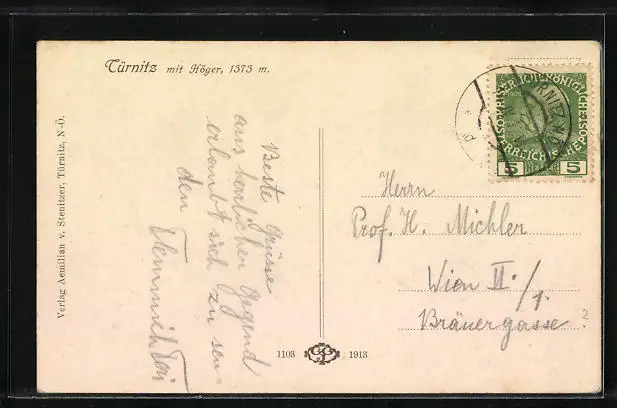 Türnitz mit Höger, 1373 m.
Verlag Aemilian v. Stenitzer, Türnitz, N.-Ö.
Beste Grüsse
aus herrlichen Gegend
erlaubt sich zu sen=
den
1103 1913
KAISERLICHKÖNIGLICHE
ÖSTERREICHISCHE POST
5 5
TÜRNITZ N.Ö.
Herrn
Prof. H. Michler
Wien II./1.
Bräuergasse ?